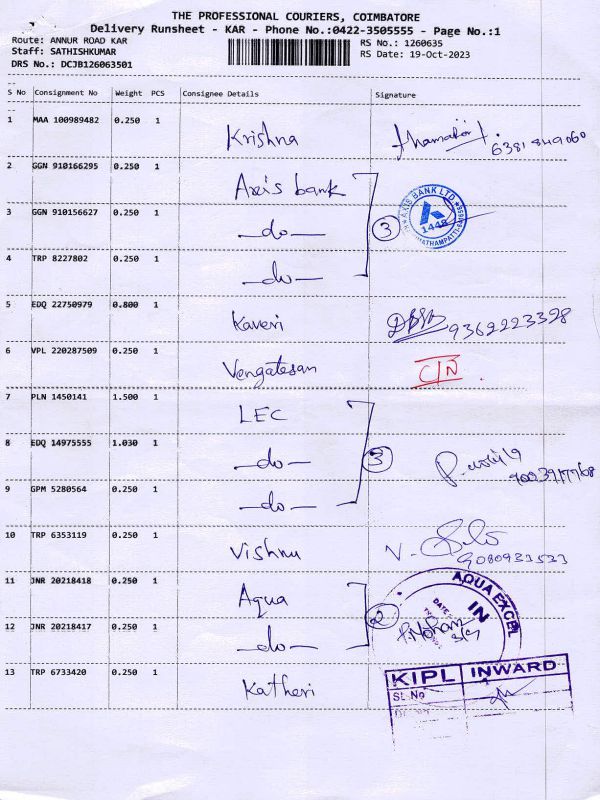 THE PROFESSIONAL COURIERS, COIMBATORE
Delivery Runsheet - KAR - Phone No.:0422-3505555 - Page No.:1
Route: ANNUR ROAD KAR RS No.: 1260635
Staff: SATHISHKUMAR RS Date: 19-Oct-2023
DRS No.: DCJB126063501
S No Consignment No Weight PCS Consignee Details Signature
1 MAA 100989482 0.250 1 Krishna
2 GGN 910166295 0.250 1 Axis bank
3 GGN 910156627 0.250 1 -do- 3 AXIS BANK LTD. 1448
4 TRP 8227802 0.250 1 -do-
5 EDQ 22750979 0.800 1 Kaveri 9362223328
6 VPL 220287509 0.250 1 Vengatesan C/N
7 PLN 1450141 1.500 1 LEC
8 EDQ 14975555 1.030 1 -do- 3
9 GPM 5280564 0.250 1 -do-
10 TRP 6353119 0.250 1 Vishnu V.
11 JNR 20218418 0.250 1 Aqua 2 AQUA EXCEL IN
12 JNR 20218417 0.250 1 -do- P.Mohan
13 TRP 6733420 0.250 1 Katheri KIPL INWARD
SL.No